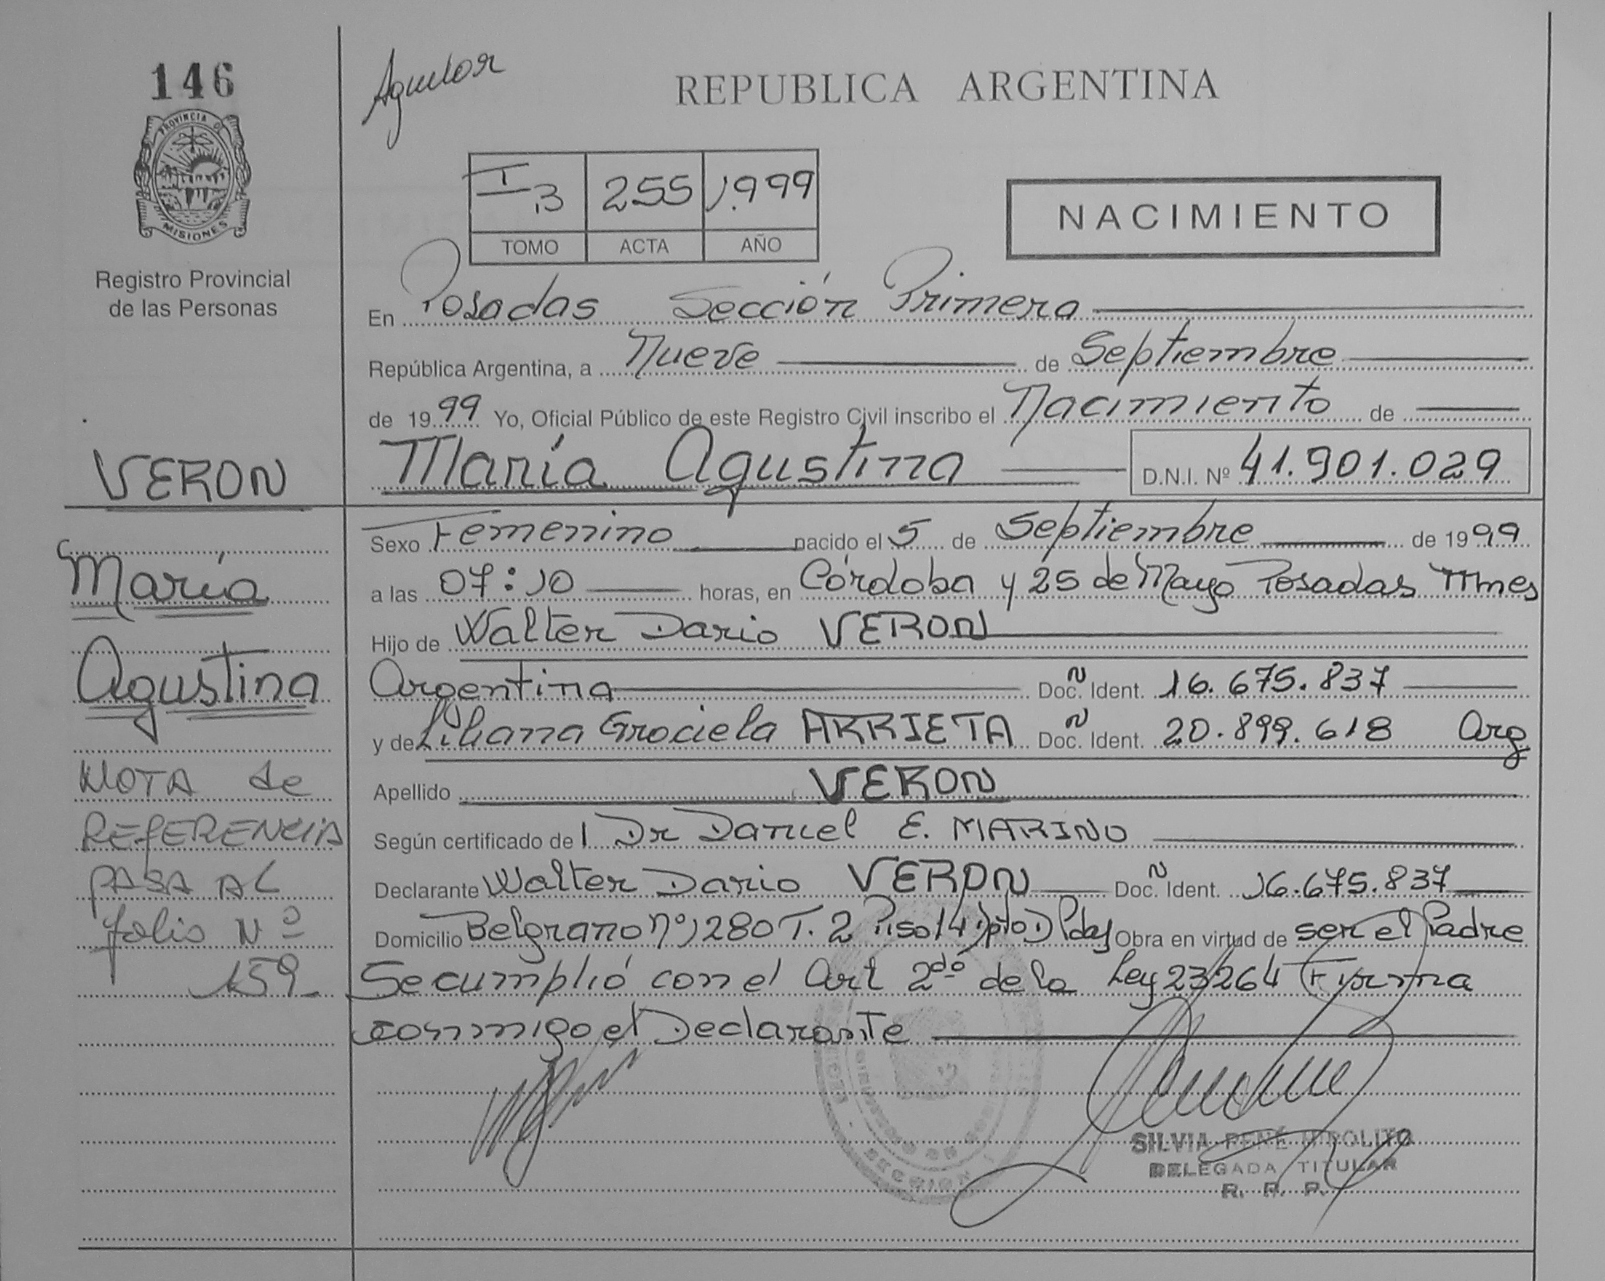 146
Aguilar
REPUBLICA ARGENTINA
PROVINCIA DE
MISIONES
Registro Provincial
de las Personas
I 3 255 1.999
TOMO ACTA AÑO
NACIMIENTO
En Posadas Sección Primera
República Argentina, a Nueve de Septiembre
de 1999 Yo, Oficial Público de este Registro Civil inscribo el Nacimiento de
María Agustina D.N.I. Nº 41.901.029
VERON
María
Agustina
NOTA de
REFERENCIA
PASA AL
folio Nº
159
Sexo Femenino nacido el 5 de Septiembre de 1999
a las 07:10 horas, en Córdoba y 25 de Mayo Posadas Mnes
Hijo de Walter Dario VERON
Argentina Doc. Ident. N 16.675.837
y de Liliana Graciela ARRIETA Doc. Ident. N 20.899.618 Arg
Apellido VERON
Según certificado de l Dr Daniel E. MARINO
Declarante Walter Dario VERON Doc. Ident. N 16.675.837
Domicilio Belgrano nº 1280 T. 2 Piso 14 Dpto D Pdas Obra en virtud de ser el Padre
Se cumplió con el Art 2do de la Ley 23264 Firma
conmigo el Declarante
SILVIA RENÉ HIPOLITO
DELEGADA TITULAR
R. P. P.